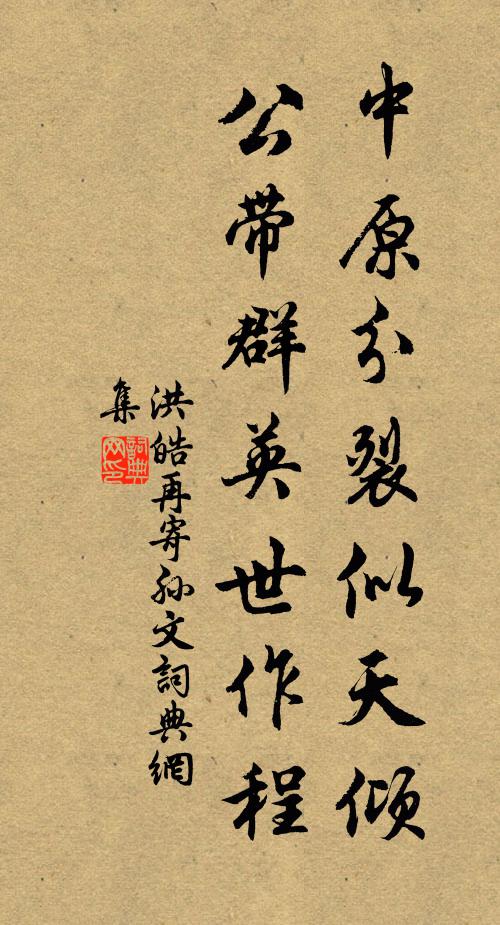 中原分裂似天倾
公带群英世作程
洪皓再寄孙文詞典網
集
詞典网印